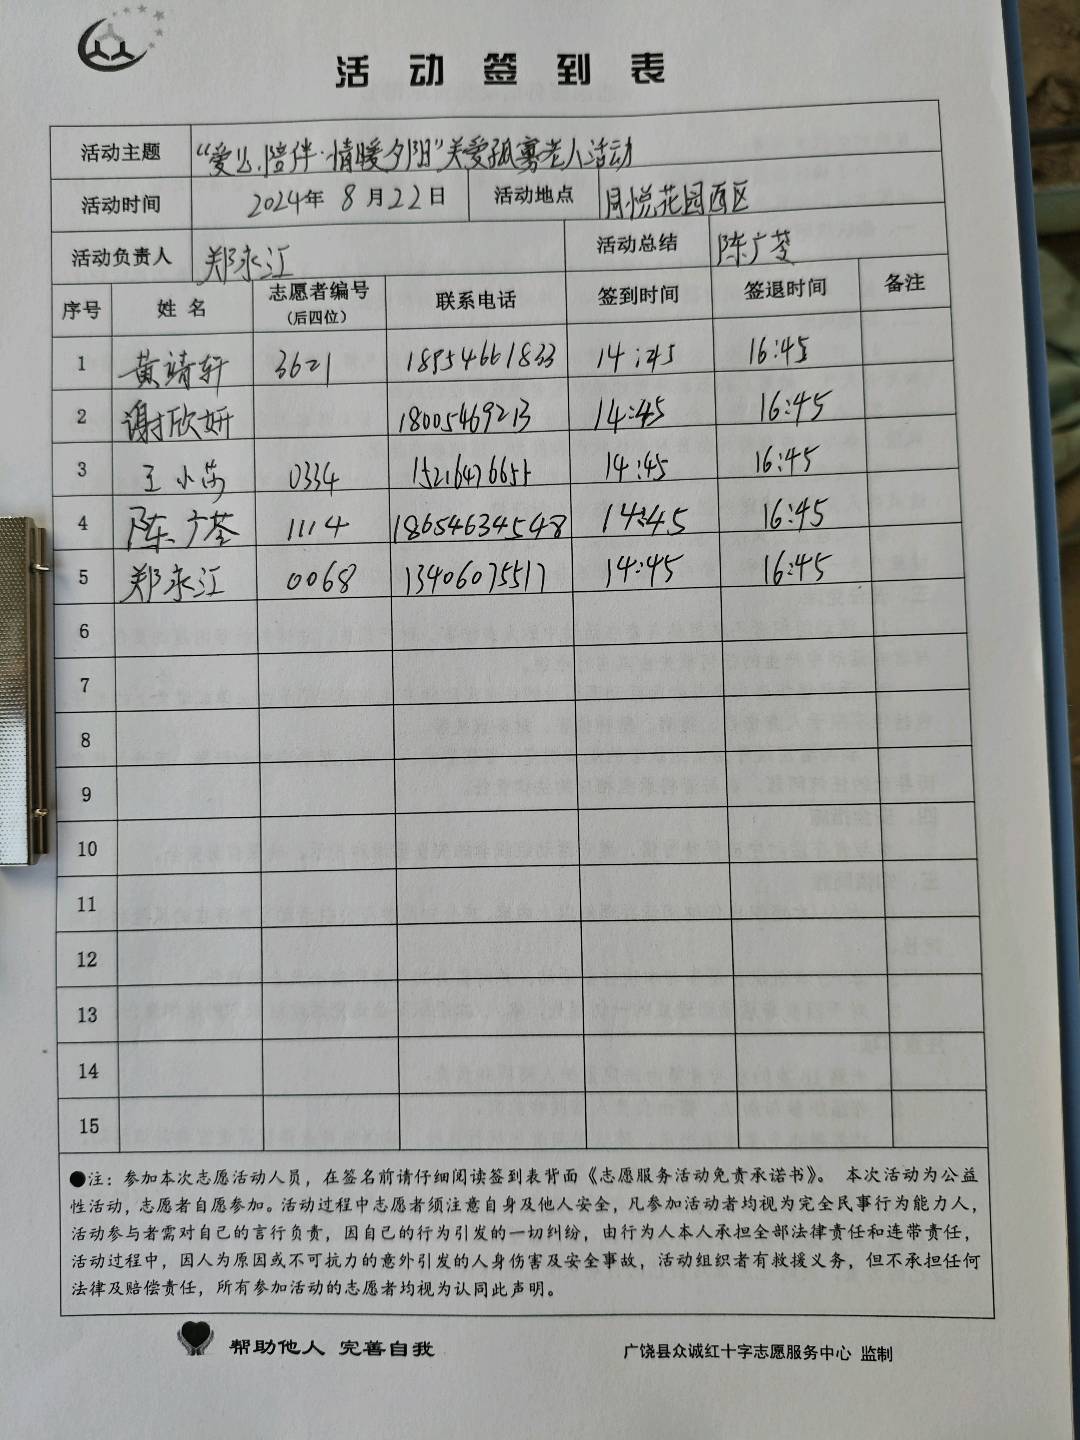 活动签到表
活动主题 “爱心陪伴·情暖夕阳”关爱孤寡老人活动
活动时间 2024年 8月22日 活动地点 同悦花园西区
活动负责人 郑永江 活动总结 陈广苓
序号 姓名 志愿者编号（后四位） 联系电话 签到时间 签退时间 备注
1 黄靖轩 3621 18954661833 14:45 16:45
2 谢欣妍 18005469213 14:45 16:45
3 王小芳 0334 14:45 16:45
4 陈广苓 1114 18654634548 14:45 16:45
5 郑永江 0068 13406075517 14:45 16:45
6
7
8
9
10
11
12
13
14
15
●注：参加本次志愿活动人员，在签名前请仔细阅读签到表背面《志愿服务活动免责承诺书》。 本次活动为公益
性活动，志愿者自愿参加。活动过程中志愿者须注意自身及他人安全，凡参加活动者均视为完全民事行为能力人，
活动参与者需对自己的言行负责，因自己的行为引发的一切纠纷，由行为人本人承担全部法律责任和连带责任，
活动过程中，因人为原因或不可抗力的意外引发的人身伤害及安全事故，活动组织者有救援义务，但不承担任何
法律及赔偿责任，所有参加活动的志愿者均视为认同此声明。
帮助他人 完善自我 广饶县众诚红十字志愿服务中心 监制